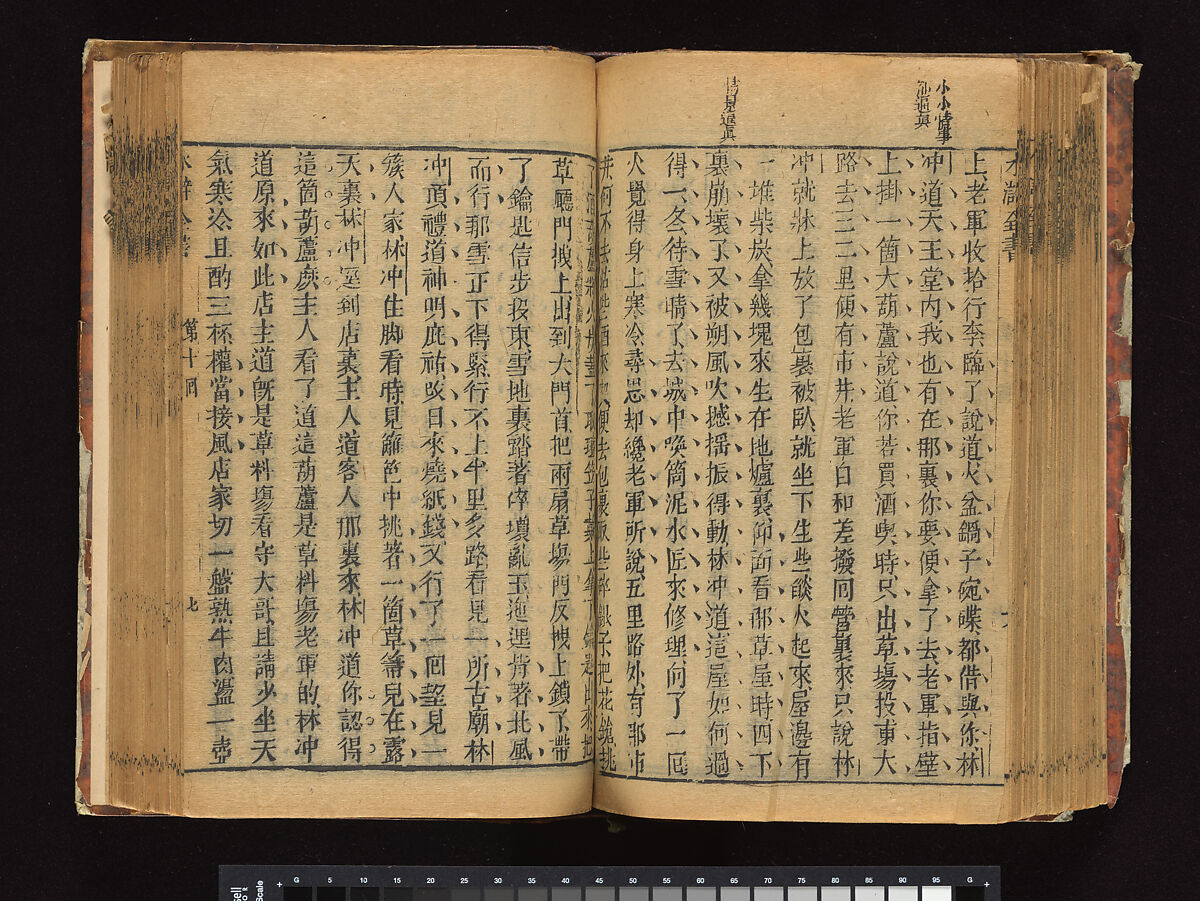 水滸全書
小小情事
逼真
情景逼真
上老軍收拾行李臨了說道火盆鍋子碗碟都借與你林
冲道天王堂內我也有在那裏你要便拿了去老軍指壁
上掛一箇大葫蘆說道你若買酒喫時只出草塲投東大
路去三二里便有市井老軍自和差撥囘營裏來只說林
冲就牀上放了包裹被臥就坐下生些燄火起來屋邊有
一堆柴炭拿幾塊來生在地爐裏仰面看那草屋時四下
裏崩壞了又被朔風吹撼搖振得動林冲道這屋如何過
得一冬待雪晴了去城中喚箇泥水匠來修理向了一囘
火覺得身上寒冷尋思却纔老軍所說五里路外有那市
井何不去沽些酒來便去包裹取些碎銀子把花鎗挑
草廳門拽上出到大門首把兩扇草塲門反拽上鎖了帶
了鑰匙信步投東雪地裏踏著碎瓊亂玉迤邐背著北風
而行那雪正下得緊行不上半里多路看見一所古廟林
冲頂禮道神明庇祐改日來燒紙錢又行了一囘望見一
簇人家林冲住脚看時見籬笆中挑著一箇草箒兒在露
天裏林冲逕到店裏主人道客人那裏來林冲道你認得
這箇葫蘆麽主人看了道這葫蘆是草料塲老軍的林冲
道原來如此店主道旣是草料塲看守大哥且請少坐天
氣寒冷且酌三杯權當接風店家切一盤熟牛肉盪一壺
第十囘
七
G 5 10 15 20 25 30 35 40 45 50 55 60 65 70 75 80 85 90 95 G